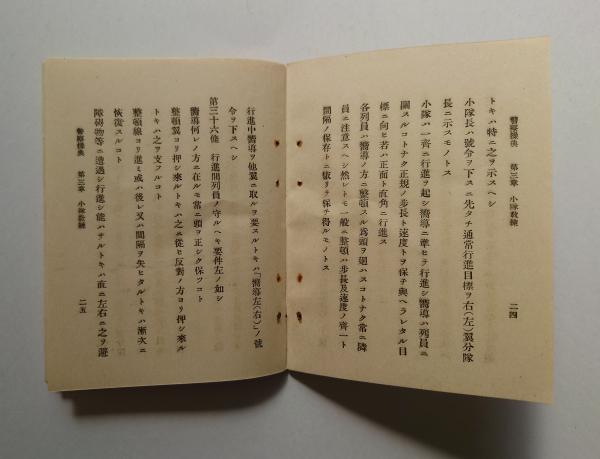 警察操典　第三章　小隊教練
二四
トキハ特ニ之ヲ示スヘシ
小隊長ハ號令ヲ下スニ先タチ通常行進目標ヲ右(左)翼分隊
長ニ示スモノトス
小隊ハ一齊ニ行進ヲ起シ嚮導ニ準ヒテ行進シ嚮導ハ列員ニ
關スルコトナク正規ノ步長ト速度トヲ保チ與ヘラレタル目
標ニ向ヒ若ハ正面ト直角ニ行進ス
各列員ハ嚮導ノ方ニ整頓スル爲頭ヲ廻ハスコトナク常ニ隣
員ニ注意スヘシ然レトモ一般ニ整頓ハ步長及速度ノ齊一ト
間隔ノ保存トニ依リテ保チ得ルモノトス
行進中嚮導ヲ他翼ニ取ルヲ要スルトキハ「嚮導左(右)」ノ號
令ヲ下スヘシ
第三十六條　行進間列員ノ守ルヘキ要件左ノ如シ
嚮導何レノ方ニ在ルモ常ニ頭ヲ正シク保ツコト
整頓翼ヨリ押シ來ルトキハ之ニ從ヒ反對ノ方ヨリ押シ來ル
トキハ之ヲ支フルコト
整頓線ヨリ進ミ或ハ後レ又ハ間隔ヲ失ヒタルトキハ漸次ニ
恢復スルコト
障碍物等ニ遭遇シ行進シ能ハサルトキハ直ニ左右ニ之ヲ避
警察操典　第三章　小隊敎練
二五